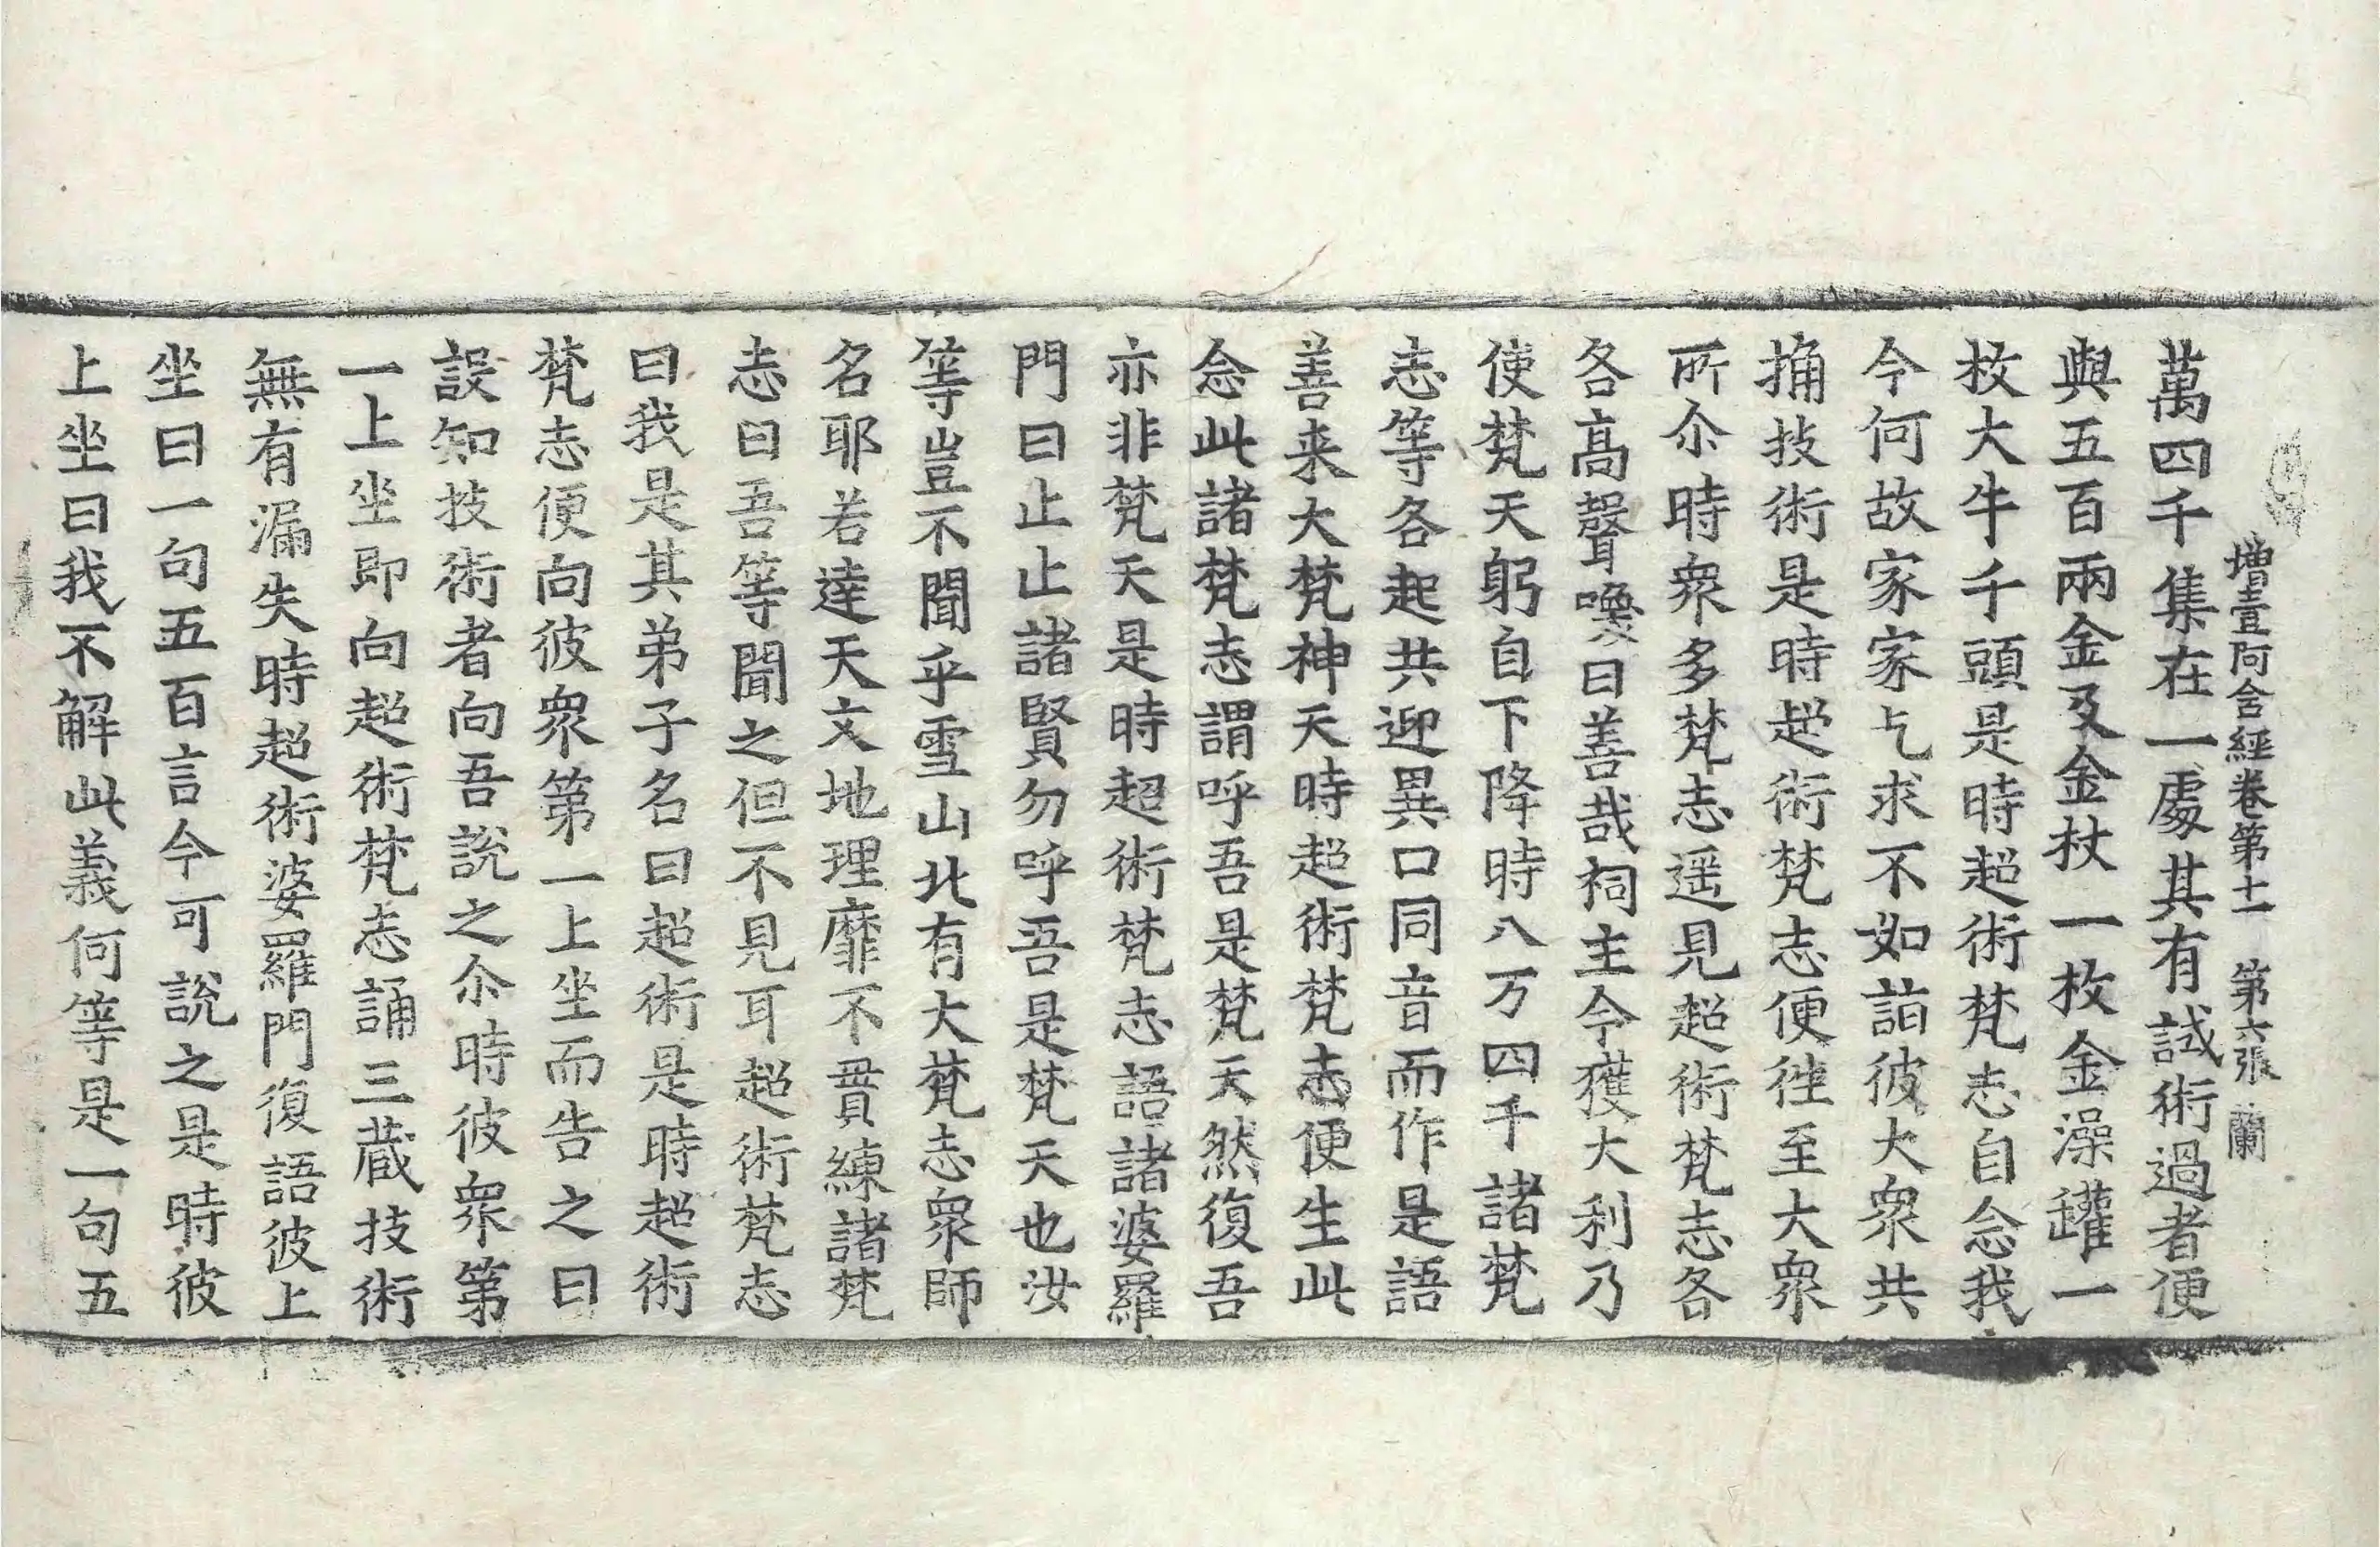 增壹阿含經卷第十一　第六張　蘭
萬四千集在一處其有試術過者便
與五百兩金及金杖一枚金澡罐一
枚大牛千頭是時超術梵志自念我
今何故家家乞求不如詣彼大衆共
捔技術是時超術梵志便往至大衆
所尒時衆多梵志遥見超術梵志各
各高聲喚曰善哉祠主今獲大利乃
使梵天躬自下降時八万四千諸梵
志等各起共迎異口同音而作是語
善来大梵神天時超術梵志便生此
念此諸梵志謂呼吾是梵天然復吾
亦非梵天是時超術梵志語諸婆羅
門曰止止諸賢勿呼吾是梵天也汝
等豈不聞乎雪山北有大梵志衆師
名耶若達天文地理靡不貫練諸梵
志曰吾等聞之但不見耳超術梵志
曰我是其弟子名曰超術是時超術
梵志便向彼衆第一上坐而告之曰
設知技術者向吾說之尒時彼衆第
一上坐即向超術梵志誦三藏技術
無有漏失時超術婆羅門復語彼上
坐曰一句五百言今可說之是時彼
上坐曰我不解此義何等是一句五